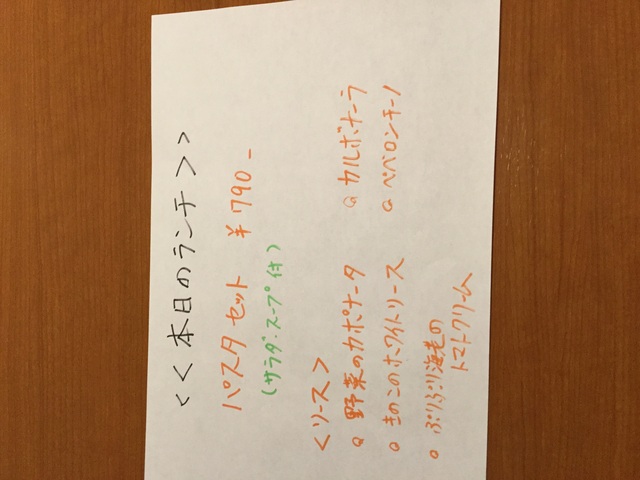 <<本日のランチ>>
パスタセット ¥790-
(サラダ・スープ付)
<ソース>
○野菜のカポナータ ○カルボナーラ
○きのこのホワイトソース ○ペペロンチーノ
○ぷりぷり海老の
トマトクリーム